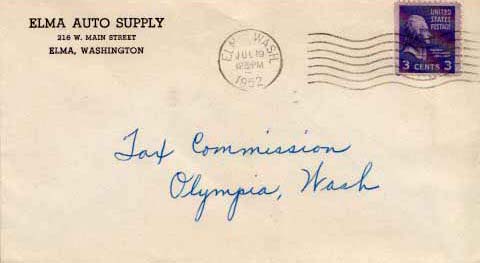 ELMA AUTO SUPPLY
216 W. MAIN STREET
ELMA, WASHINGTON
ELMA, WASH.
JUL 19
PM
1952
UNITED
STATES
POSTAGE
3 CENTS 3
Tax Commission
Olympia, Wash